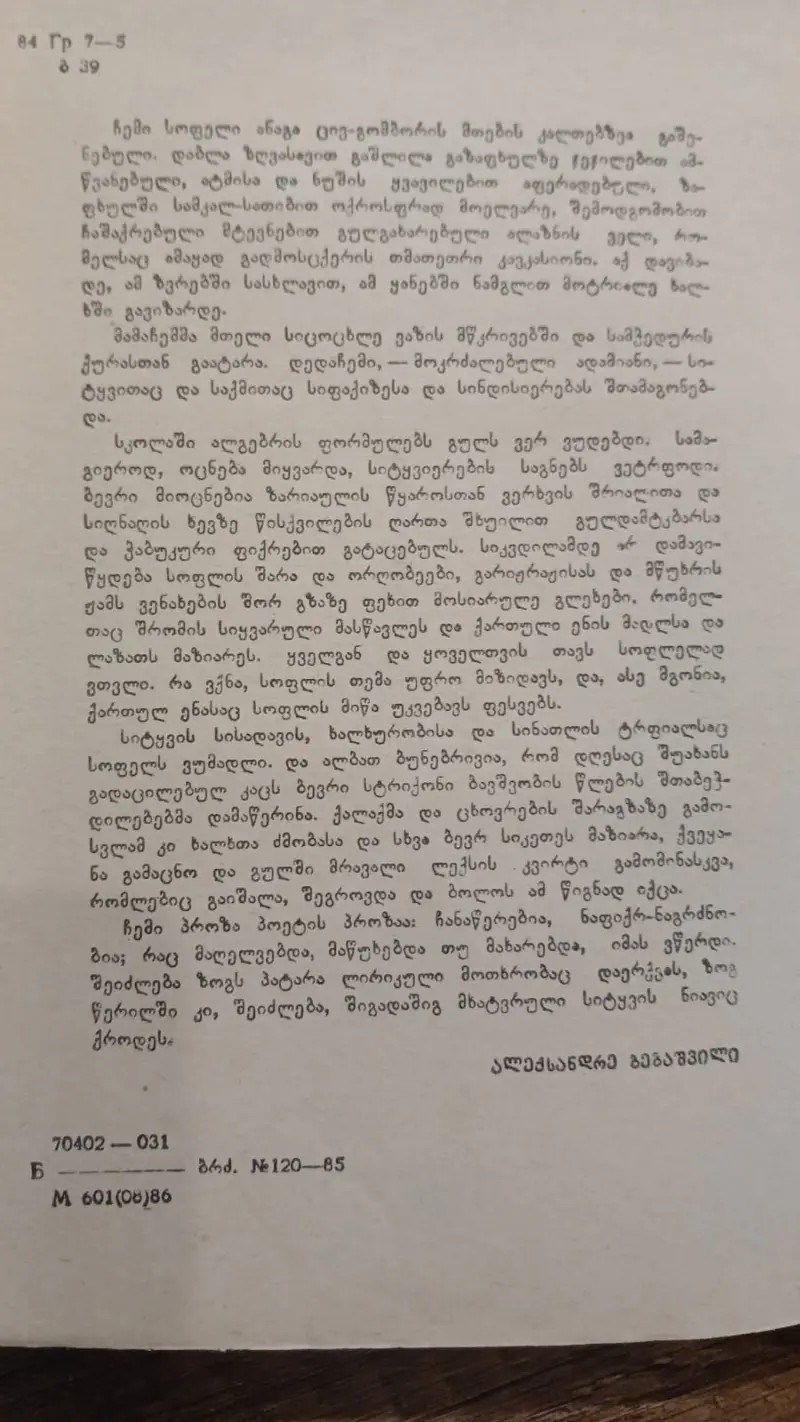 84 Гр 7—5
ბ 39
ჩემი სოფელი ანაგა ცივ-გომბორის მთების კალთებზეა გაშე-
ნებული. დაბლა ზღვასავით გაშლილა გაზაფხულზე ჯეჯილებით ამ-
წვანებული, ატმისა და ნუშის ყვავილებით აფერადებული, ზა-
ფხულში სამკალ-სათიბით ოქროსფრად მოელვარე, შემოდგომობით
ჩაშაქრებული მტევნებით გულგახარებული ალაზნის ველი, რო-
მელსაც ამაყად გადმოსცქერის თმათეთრი კავკასიონი. აქ დავიბა-
დე, ამ ზვრებში სასხლავით, ამ ყანებში ნამგლით მოტრიალე ხალ-
ხში გავიზარდე.
მამაჩემმა მთელი სიცოცხლე ვაზის მწკრივებში და სამჭედურის
ქურასთან გაატარა. დედაჩემი, — მოკრძალებული ადამიანი, — სი-
ტყვითაც და საქმითაც სიფაქიზესა და სინდისიერებას შთამაგონებ-
და.
სკოლაში ალგებრის ფორმულებს გულს ვერ ვუდებდი. სამა-
გიეროდ, ოცნება მიყვარდა, სიტყვიერების საგნებს ვეტრფოდი.
ბევრი მიოცნებია ზარიაულის წყაროსთან ვერხვის შრიალითა და
სიღნაღის ხევზე წისქვილების ღართა შხუილით გულდამტკბარსა
და ჭაბუკური ფიქრებით გატაცებულს. სიკვდილამდე არ დამავი-
წყდება სოფლის შარა და ორღობეები, გარიჟრაჟისას და მწუხრის
ჟამს ვენახების შორ გზაზე ფეხით მოსიარულე გლეხები. რომელ-
თაც შრომის სიყვარული მასწავლეს და ქართული ენის მადლსა და
ლაზათს მაზიარეს. ყველგან და ყოველთვის თავს სოფლელად
ვთვლი. რა ვქნა, სოფლის თემა უფრო მიზიდავს, და, ასე მგონია,
ქართულ ენასაც სოფლის მიწა უკვებავს ფესვებს.
სიტყვის სისადავის, ხალხურობისა და სინათლის ტრფიალსაც
სოფელს ვუმადლი. და ალბათ ბუნებრივია, რომ დღესაც შუახანს
გადაცილებულ კაცს ბევრი სტრიქონი ბავშვობის წლების შთაბეჭ-
დილებებმა დამაწერინა. ქალაქმა და ცხოვრების შარაგზაზე გამო-
სვლამ კი ხალხთა ძმობასა და სხვა ბევრ სიკეთეს მაზიარა, ქვეყა-
ნა გამაცნო და გულში მრავალი ლექსის კვირტი გამომინასკვა,
რომლებიც გაიშალა, შეგროვდა და ბოლოს ამ წიგნად იქცა.
ჩემი პროზა პოეტის პროზაა: ჩანაწერებია, ნაფიქრ-ნაგრძნო-
ბია; რაც მაღელვებდა, მაწუხებდა თუ მახარებდა, იმას ვწერდი.
შეიძლება ზოგს პატარა ლირიკული მოთხრობაც დაერქვას, ზოგ
წერილში კი, შეიძლება, შიგადაშიგ მხატვრული სიტყვის ნიავიც
ქროდეს.
ალექსანდრე ბებაშვილი
70402 — 031
Б ———— ბრძ. №120—85
М 601(08)86